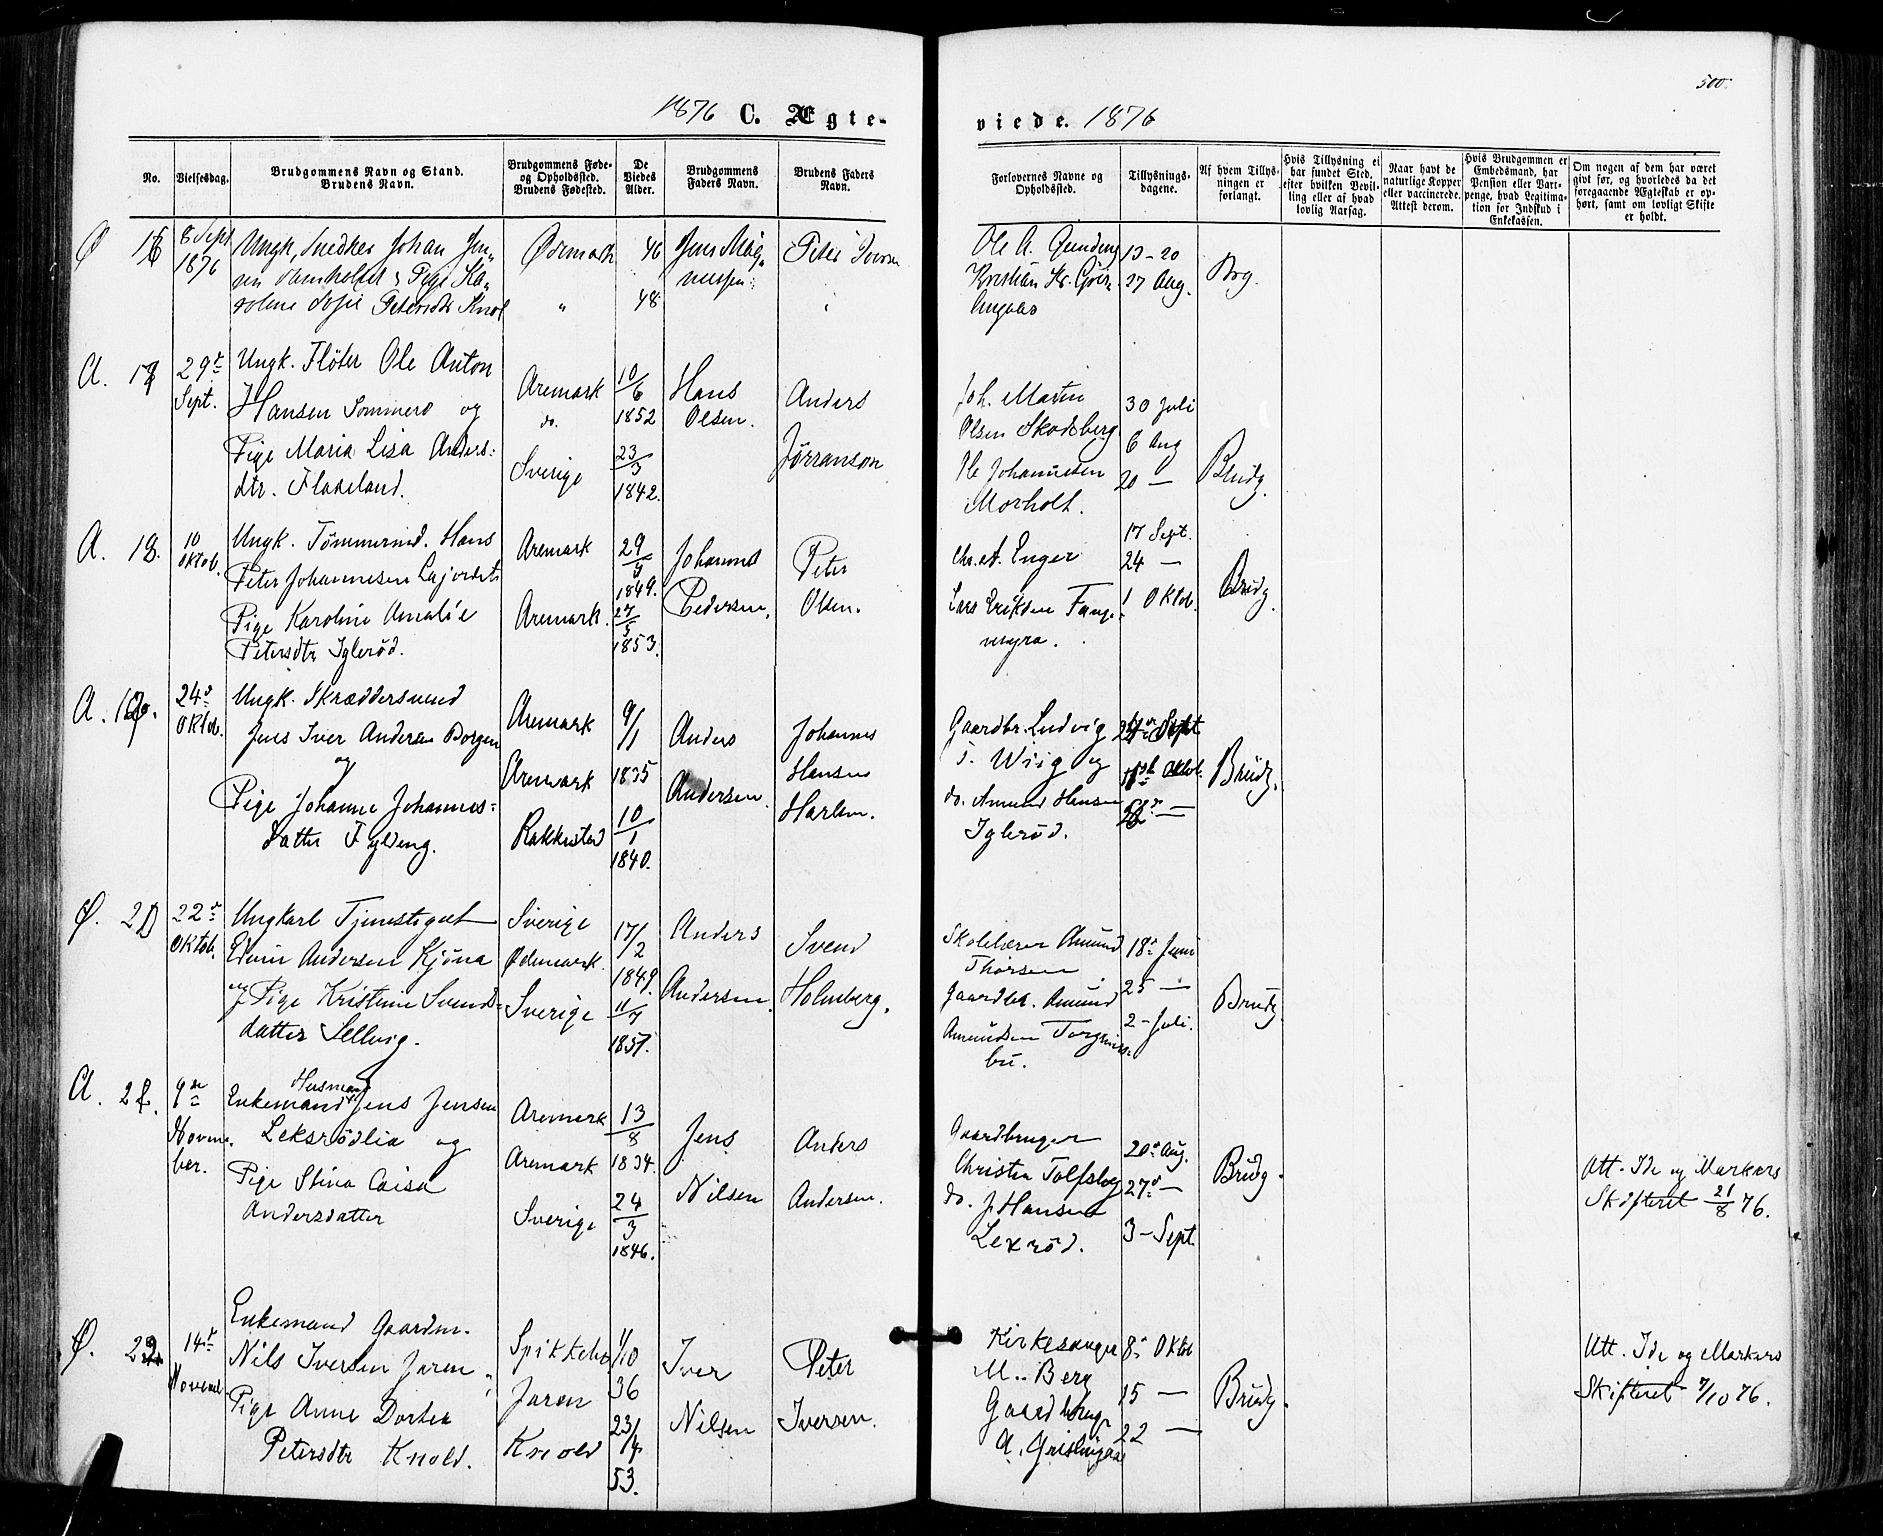 500.
1876 C. Ægte-
viede. 1876
No.
Vielsesdag.
Brudgommens Navn og Stand.
Brudens Navn.
Brudgommens Føde-
og Opholdssted.
Brudens Fødested.
De
Viedes
Alder.
Brudgommens
Faders Navn.
Brudens Faders
Navn.
Forlovernes Navne og
Opholdssted.
Tillysnings-
dagene.
Af hvem Tillys-
ningen er
forlangt.
Hvis Tillysning ei
har fundet Sted,
efter hvilken Bevil-
ling eller af hvad
lovlig Aarsag.
Naar havt de
naturlige Kopper
eller vaccinerede.
Attest derom.
Hvis Brudgommen er
Embedsmand, har
Pension eller Vart-
penge, hvad Legitima-
tion for Indskud i
Enkekassen.
Om nogen af dem har været
givt før, og hvorledes da det
foregaaende Ægteskab er op-
hørt, samt om lovligt Skifte
er holdt.
Ø 16
8 Sept
1876
Ungk. Snedker Johan Jen-
sen & Pige Ka-
roline Sofie Petersdtr Knol
46
"
48
Jens Mag-
nussen
Peter Iversen
Ole A.
Kristian Kr.
13-20
27 Aug.
Brg.
A. 17
29
Sept.
Ungk. Fløter Ole Anton
Hansen Sommero og
Pige Maria Lisa Anders-
dtr. Flaxeland.
Aremark
do.
Sverige
10/6
1852
23/3
1842.
Hans
Olsen.
Anders
Jørranson
Joh. Martin
Olsen Skodsberg
Ole Johannesen
Morholt.
30 Juli
6 Aug
20 —
Brudg.
A. 18.
10
Oktob.
Ungk. Tømmermd. Hans
Peter Johannesen
Pige Karoline Amalie
Petersdtr Iglerød.
Aremark
Aremark.
29
1849.
27/5
1853.
Johannes
Pedersen.
Peter
Olsen.
Chr. A. Enger
Lars Eriksen
17 Sept.
24 —
1 Oktob.
Brudg.
A. 19.
24
Oktob.
Ungk. Skræddersvend
Jens Iver Andersen Borgen
og
Pige Johanne Johannes-
datter Fylding.
Aremark
Aremark
Rakkestad
9/1
1835
10/1
1840.
Anders
Andersen.
Johannes
Hansen
Gaardbr. Ludvig
Wiig og
do. Amund Hansen
Iglerød.
Sept.
Oktob.
Brudg.
Ø. 20
22
Oktob.
Ungkarl Tjenestegut
Edvin Andersen Kjøna
og Pige Kristine Svends-
datter Sellvig.
Sverige
Ødemark.
Sverige
17/2
1849.
11/7
1857.
Anders
Andersen.
Svend
Holmberg.
Skolelærer Amund
Thorsen
Gaardbr. Amund
Amundsen
18 Juni
25 —
2 - Juli.
Brudg.
A. 21.
9de
Novem-
ber.
Husmand
Enkemand Jens Jensen
Leksrødlia og
Pige Stina Caisa
Andersdatter
Aremark
Aremark
Sverige
13/8
1834.
24/3
1846.
Jens
Nilsen
Anders
Andersen.
Gaardbruger
Christen Tolfsby
do. J. Hansen
Lexrød.
20 Aug.
27 —
3 - Sept.
Brudg.
Att. Ide og Markers
Skifteret 21/8 76.
Ø. 22
14
Novemb.
Enkemand Gaardm.
Nils Iversen Jaren
Pige Anne Dortea
Petersdtr Knold.
Jaren
Knold
1/10
36
23/4
53.
Iver
Nilsen
Peter
Iversen.
Kirkesanger
M. Berg
Gaardbruger
A.
8 Oktob
15 —
22 —
Brudg.
Att. Ide og Markers
Skifteret 7/10 76.